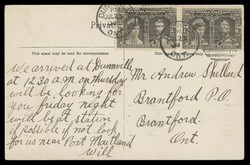 Private
This space may be used for correspondence
We arrived at Dunnville
at 12.30 a.m. on Thursday
will be looking for
you friday night
will be at station
if possible if not look
for us near Port Maitland
Will
Mr Andrew Shellard
Brantford P.O.
Brantford.
Ont.